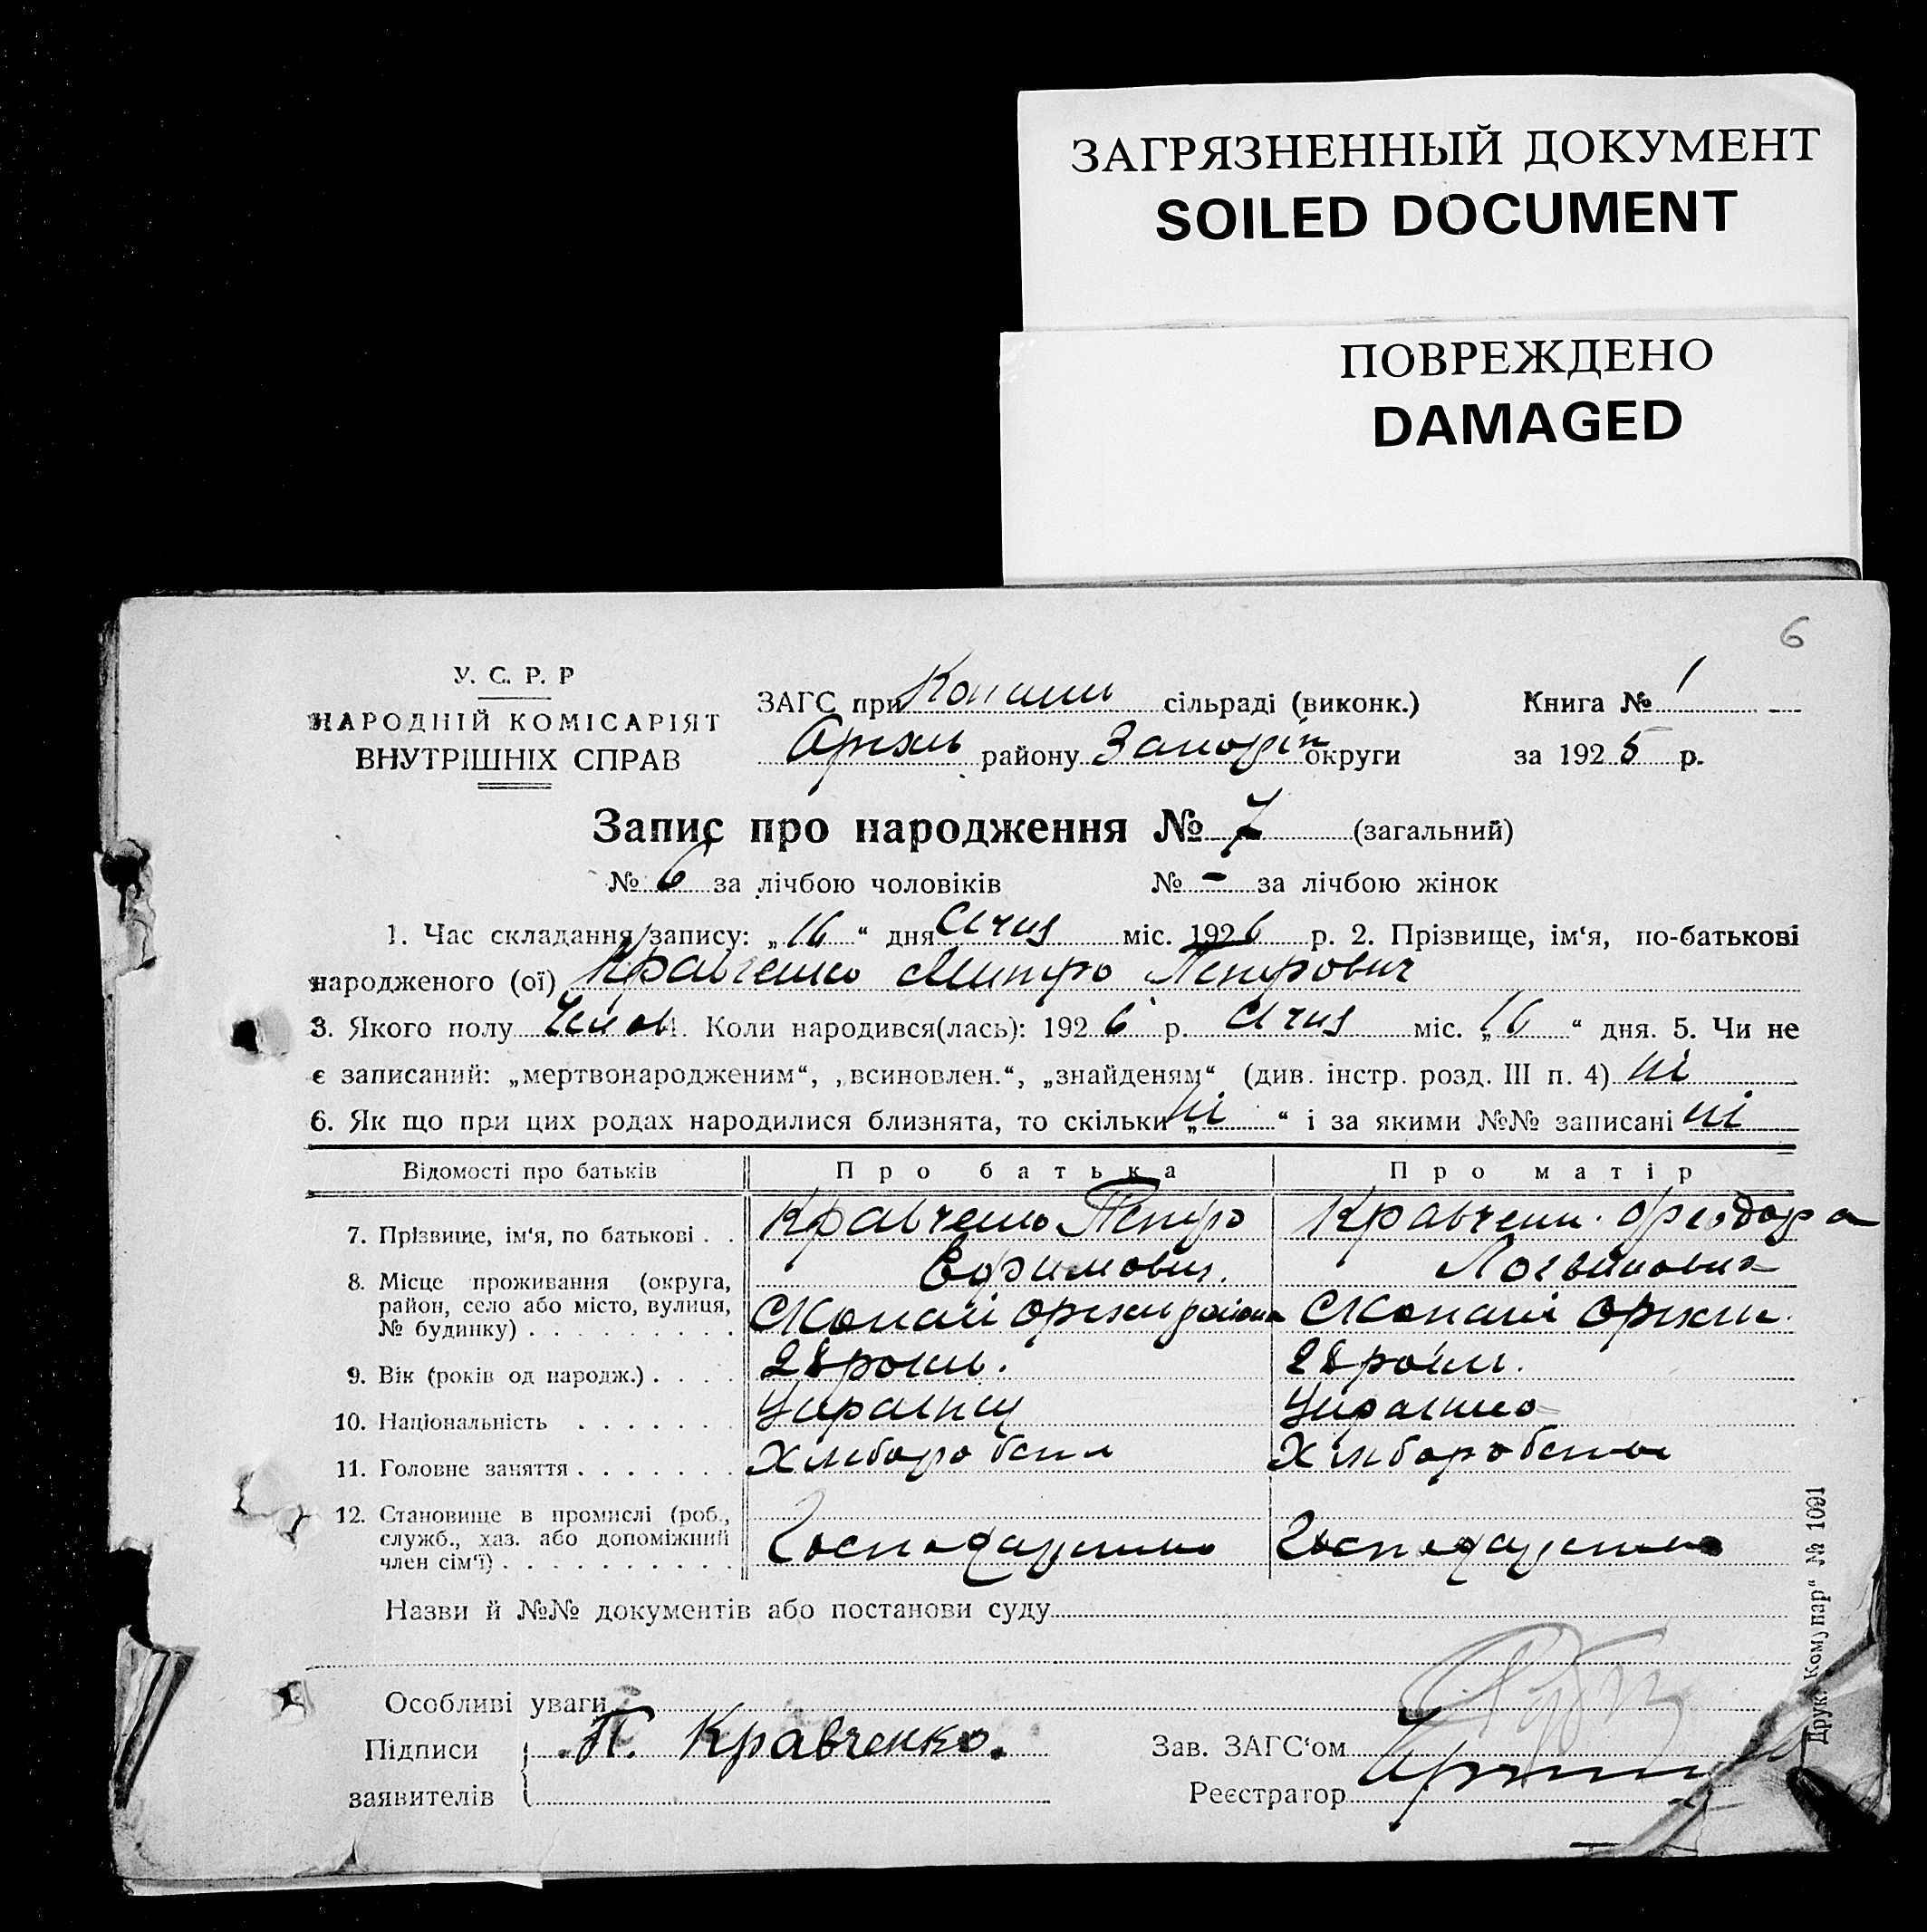 ЗАГРЯЗНЕННЫЙ ДОКУМЕНТ
SOILED DOCUMENT
ПОВРЕЖДЕНО
DAMAGED
6
У. С. Р. Р
НАРОДНІЙ КОМІСАРІЯТ
ВНУТРІШНІХ СПРАВ
ЗАГС при Копани сільраді (виконк.) Книга № 1
Оріхів району Запоріж округи за 1925 р.
Запис про народження № 7 (загальний)
№ 6 за лічбою чоловіків № - за лічбою жінок
1. Час складання запису: „16“ дня Січня міс. 1926 р. 2. Прізвище, ім‘я, по-батькові
народженого (ої) Кравченко Митро Петрович
3. Якого полу Челов 4. Коли народився(лась): 1926 р. Січня міс. „16“ дня. 5. Чи не
є записаний: „мертвонародженим“, „всиновлен.“, „знайденям“ (див. інстр. розд. III п. 4) ні
6. Як що при цих родах народилися близнята, то скільки „ні“ і за якими №№ записані ні
Відомості про батьків Про батька Про матір
7. Прізвище, ім‘я, по батькові . . Кравченко Петро Ефимович. Кравченк. Феодора Логвиновна
8. Місце проживання (округа, район, село або місто, вулиця, № будинку) . . . . . . . . . С Копані Оріхів района С Копані Оріхів.
9. Вік (років од народж.) . . . . 28 роки. 28 роки.
10. Національність . . . . . . . Українц Українка
11. Головне заняття . . . . . . . Хліборобств Хліборобство
12. Становище в промислі (роб., служб., хаз. або допоміжний член сім‘ї) . . . . . . . . . .
Назви й №№ документів або постанови суду
Особливі уваги
Підписи П. Кравченко. Зав. ЗАГС‘ом
заявителів Реєстратор
Друк. Комунар“ № 1091